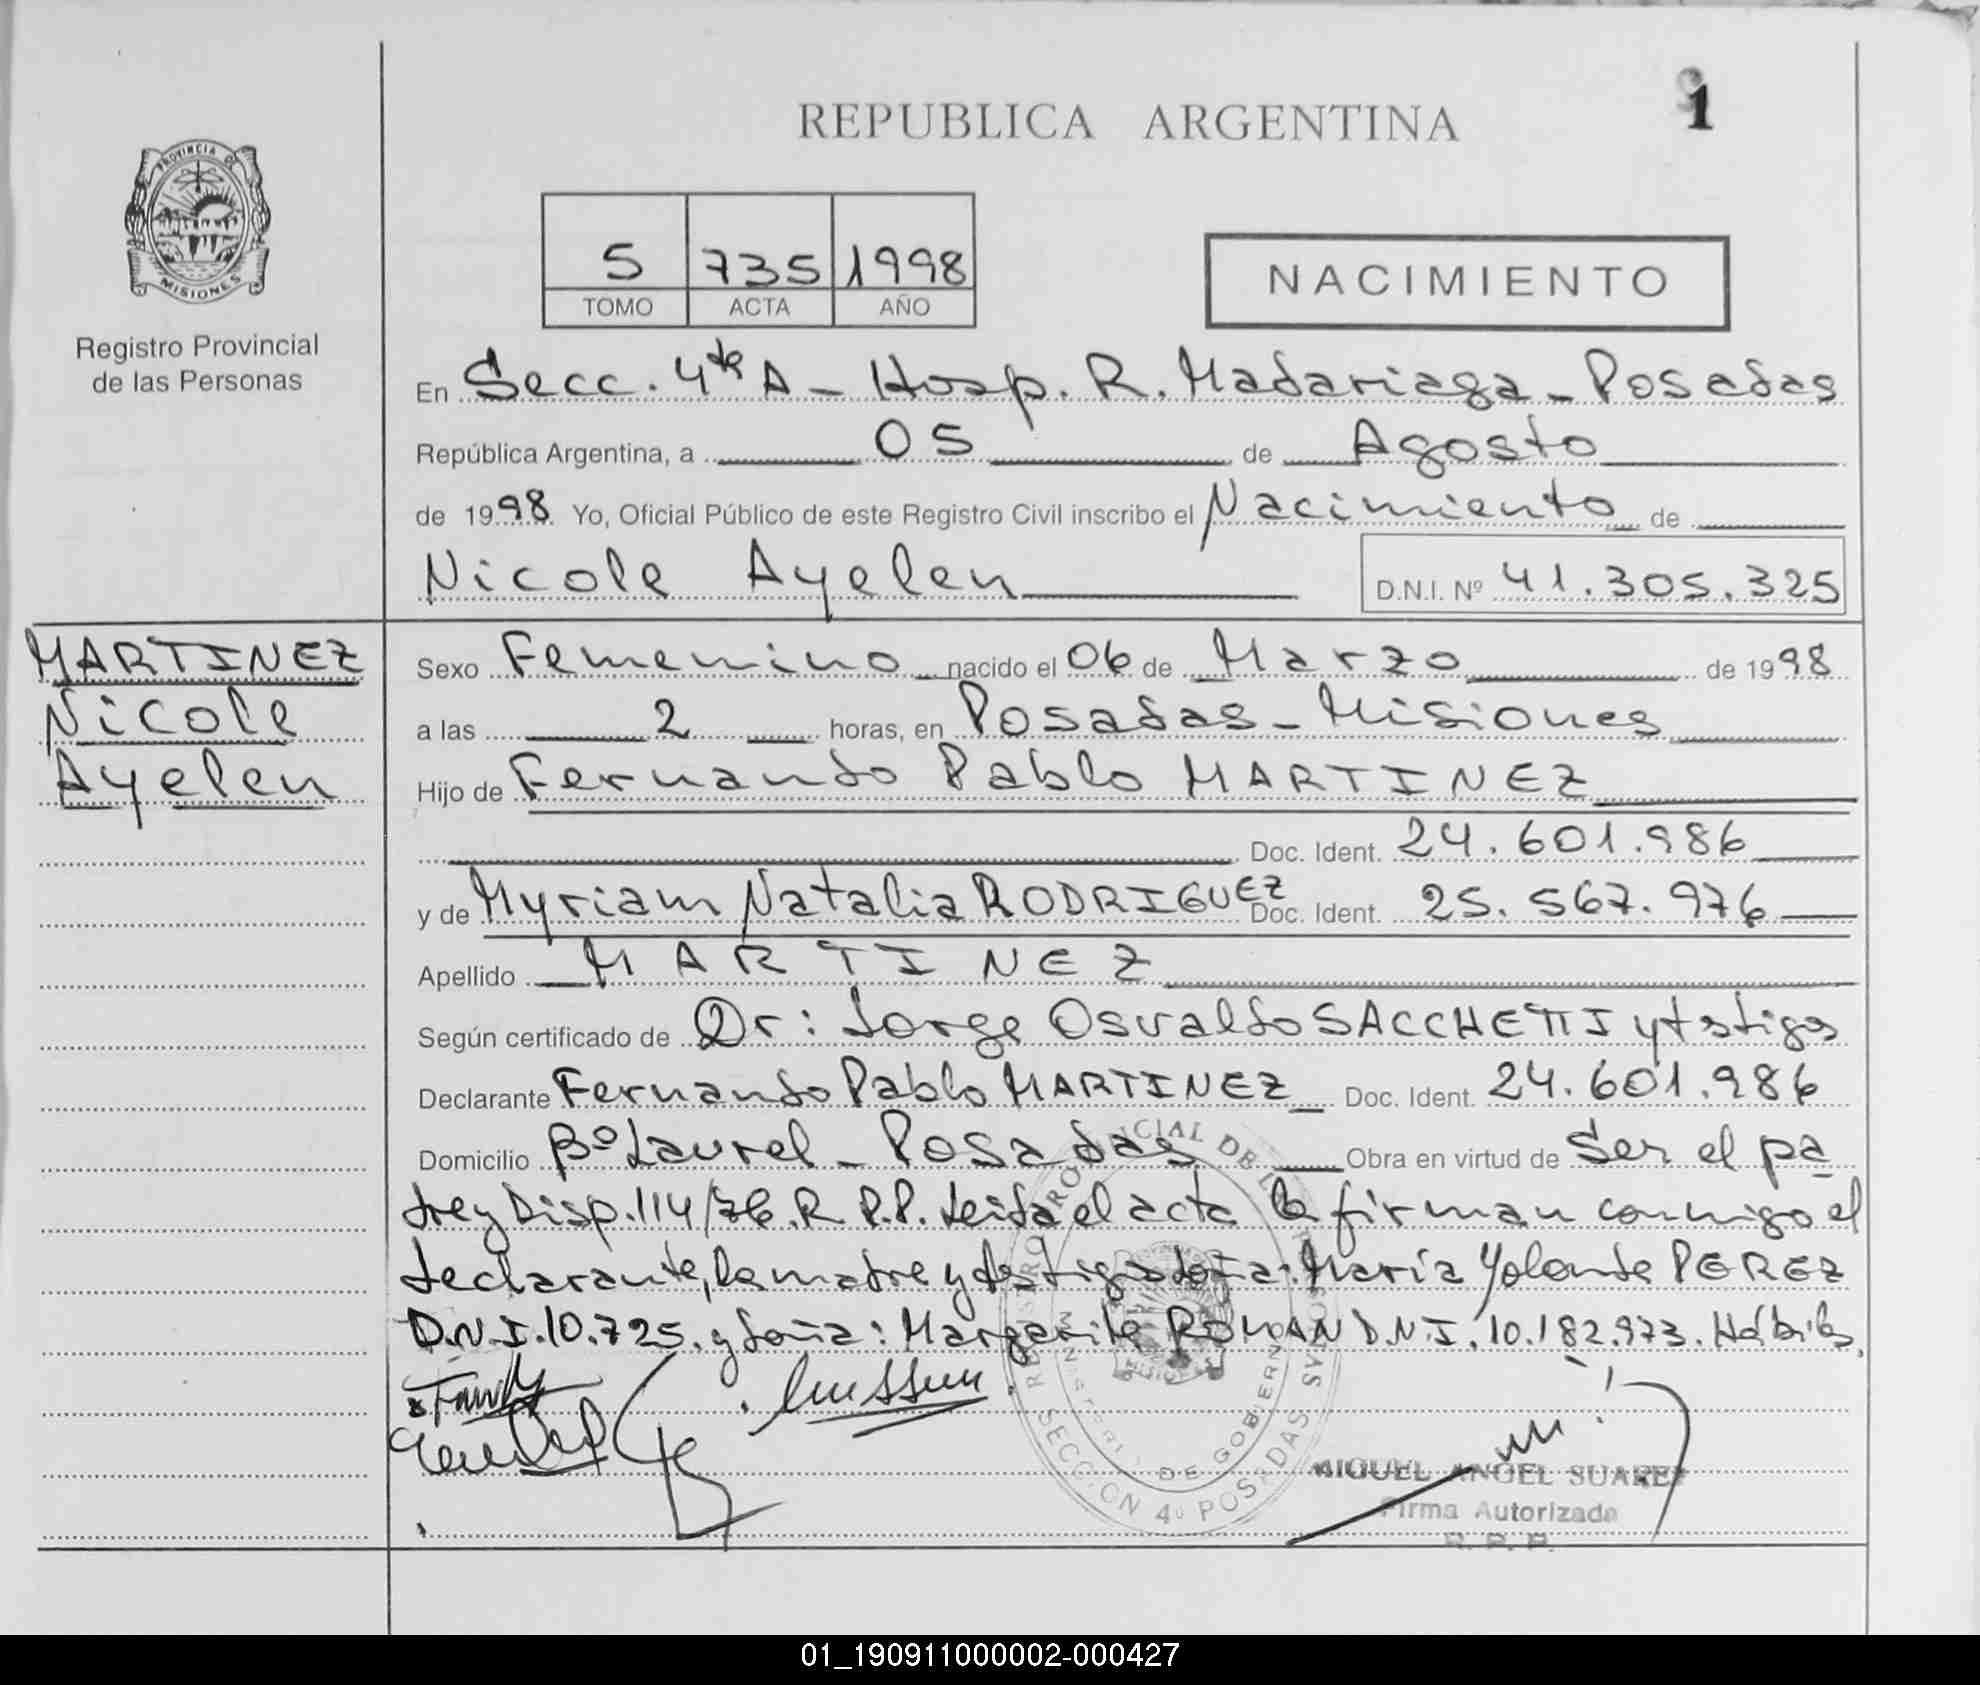 REPUBLICA ARGENTINA
1
PROVINCIA DE
MISIONES
Registro Provincial
de las Personas
5 735 1998
TOMO ACTA AÑO
NACIMIENTO
En Secc. 4ta A - Hosp. R. Madariaga - Posadas
República Argentina, a 05 de Agosto
de 1998 Yo, Oficial Público de este Registro Civil inscribo el Nacimiento de
Nicole Ayelen D.N.I. Nº 41.305.325
MARTINEZ
Nicole
Ayelen
Sexo Femenino nacido el 06 de Marzo de 1998
a las 2 horas, en Posadas - Misiones
Hijo de Fernando Pablo MARTINEZ
Doc. Ident. 24.601.986
y de Myriam Natalia RODRIGUEZ Doc. Ident. 25.567.976
Apellido MARTINEZ
Según certificado de Dr: Jorge Osvaldo SACCHETTI y testigos
Declarante Fernando Pablo MARTINEZ Doc. Ident. 24.601.986
Domicilio Bº Laurel - Posadas Obra en virtud de Ser el pa
dre y Disp. 114/76. R.P.P. Leida el acta la firman conmigo el
declarante, la madre y testigos doña: María Yolanda PEREZ
D.N.I. 10.725. y doña: Margarita ROMAN D.N.I. 10.182.973. Hábiles.
REGISTRO PROVINCIAL DE LAS PERSONAS
MINISTERIO DE GOBIERNO
SECCION 4º POSADAS
MIGUEL ANGEL SUAREZ
Firma Autorizada
R. P. P.
01_190911000002-000427